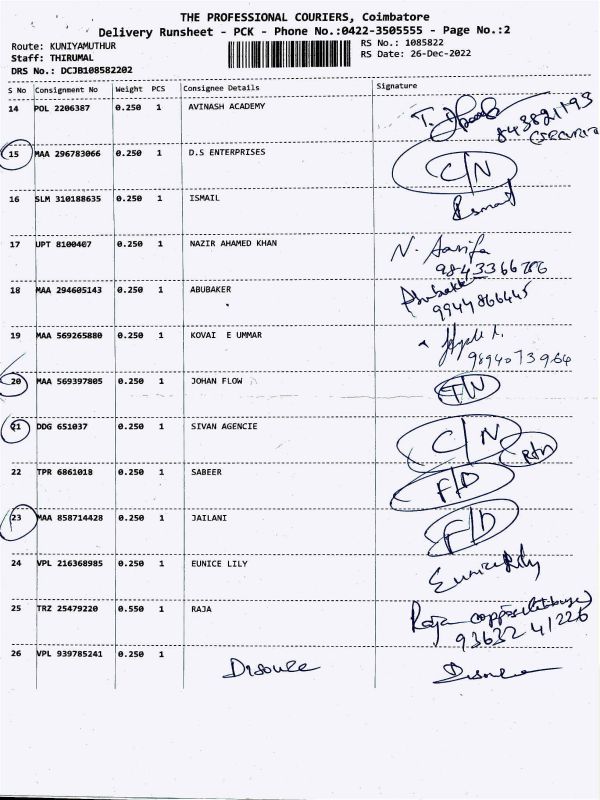 THE PROFESSIONAL COURIERS, Coimbatore
Delivery Runsheet - PCK - Phone No.:0422-3505555 - Page No.:2
Route: KUNIYAMUTHUR
RS No.: 1085822
Staff: THIRUMAL
RS Date: 26-Dec-2022
DRS No.: DCJB108582202
S No Consignment No Weight PCS Consignee Details Signature
14 POL 2206387 0.250 1 AVINASH ACADEMY
15 MAA 296783066 0.250 1 D.S ENTERPRISES C/N
16 SLM 310188635 0.250 1 ISMAIL Ismail
17 UPT 8100407 0.250 1 NAZIR AHAMED KHAN N.
18 MAA 294605143 0.250 1 ABUBAKER
9944866445
19 MAA 569265880 0.250 1 KOVAI E UMMAR
9894073964
20 MAA 569397805 0.250 1 JOHAN FLOW
21 DDG 651037 0.250 1 SIVAN AGENCIE C/N
22 TPR 6861018 0.250 1 SABEER F/D
23 MAA 858714428 0.250 1 JAILANI F/D
24 VPL 216368985 0.250 1 EUNICE LILY Eunice Lily
25 TRZ 25479220 0.550 1 RAJA Raja
93632 41226
26 VPL 939785241 0.250 1